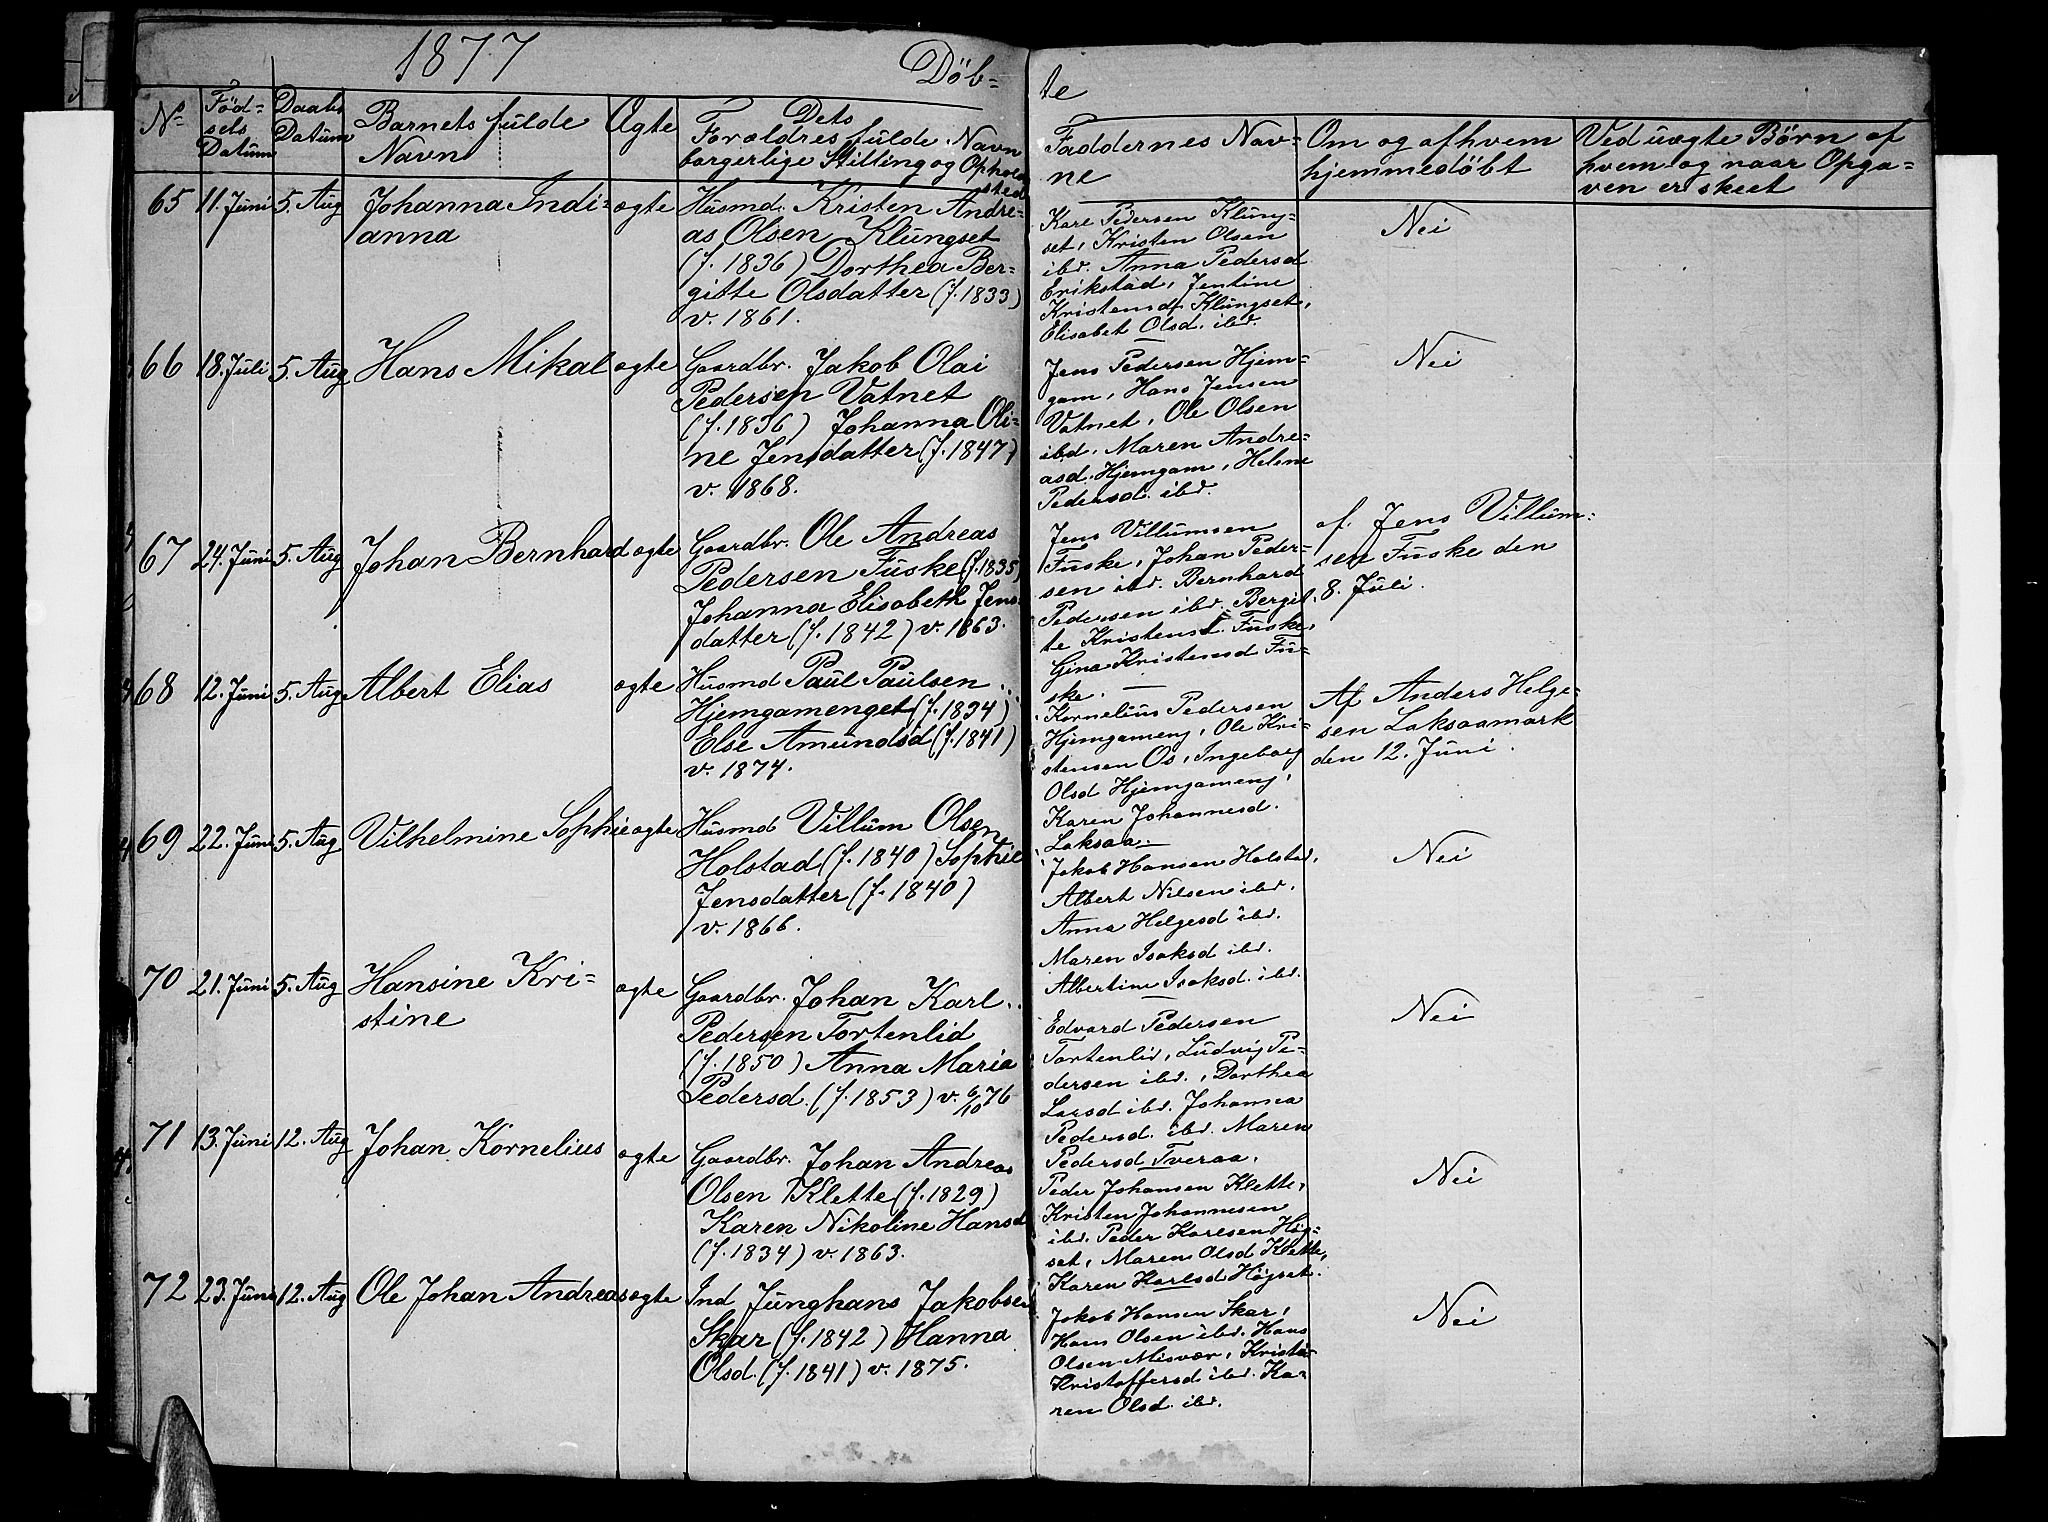 1877
Döb-
te
No
Föd-
sels
Datum
Daabs
Datum
Barnets fulde
Navn
Ægte
Dets
Forældres fulde Navn
borgerlige Stilling og Opholds
sted
Faddernes Nav-
ne
Om og af hvem
hjemmedøbt
Ved uægte Børn af
hvem og naar Opga-
ven er skeet
65 11. Juni 5. Aug Johanna Indi-
anna
ægte
Husmd. Kristen Andre-
as Olsen Klungset
(f. 1836) Dorthea Ber-
gitte Olsdatter (f. 1833)
v. 1861.
Karl Pedersen Klung-
set, Kristen Olsen
ibd. Anna Pedersd
Erikstad, Jentine
Kristensd Klungset,
Elisabet Olsd. ibd.
Nei
66 18. Juli 5. Aug Hans Mikal ægte
Gaardbr. Jakob Olai
Pedersen Vatnet
(f. 1836) Johanna Oli-
ne Jensdatter (f. 1847)
v. 1868.
Jens Pedersen Hjem-
gam, Hans Jensen
Vatnet, Ole Olsen
ibd, Maren Andre-
asd. Hjemgam, Helene
Pedersd. ibd.
Nei
67 24. Juni 5. Aug Johan Bernhard ægte
Gaardbr. Ole Andreas
Pedersen Fuske (f. 1835)
Johanna Elisabeth Jens-
datter (f. 1842) v. 1863.
Jens Villumsen
Fuske, Johan Peder-
sen ibd. Bernhard
Pedersen ibd. Bergit-
te Kristensd. Fuske,
Gina Kristensd Fu-
ske.
af. Jens Villum-
sen Fuske den
8. Juli.
68 12. Juni 5. Aug Albert Elias ægte
Husmd Paul Paulsen
Hjemgamenget (f. 1834)
Else Amundsd (f. 1841)
v. 1874.
Kornelius Pedersen
Hjemgameng, Ole Kri-
stensen Os, Ingeborg
Olsd Hjemgameng,
Karen Johannesd.
Laksaa.
Af Anders Helge-
sen Laksaamark
den 12. Juni.
69 22. Juni 5. Aug Vilhelmine Sophie ægte
Husmd Villum Olsen
Holstad (f. 1840) Sophie
Jensdatter (f. 1840)
v. 1866.
Jakob Hansen Holstad,
Albert Nilsen ibd.
Anna Helgesd ibd.
Maren Isaksd ibd.
Albertine Isaksd. ibd.
Nei
70 21. Juni 5. Aug Hansine Kri-
stine
ægte
Gaardbr. Johan Karl
Pedersen Tortenlid
(f. 1850) Anna Maria
Pedersd. (f. 1853) v. 6/10 76
Edvard Pedersen
Tortenlid, Ludvig Pe-
dersen ibd., Dorthea
Larsd ibd. Johanna
Pedersd. ibd. Maren
Pedersd Tveraa.
Nei
71 13. Juni 12. Aug Johan Kornelius ægte
Gaardbr. Johan Andreas
Olsen Klette (f. 1829)
Karen Nikoline Hansd
(f. 1834) v. 1863.
Peder Johansen Klette,
Kristen Johannesen
ibd. Peder Karlsen Høg-
set, Maren Olsd Klette,
Karen Karlsd Høgset.
Nei
72 23. Juni 12. Aug Ole Johan Andreas ægte
Ind Junghans Jakobsen
Skar (f. 1842) Hanna
Olsd. (f. 1841) v. 1875.
Jakob Hansen Skar,
Hans Olsen ibd. Hans
Olsen Misvær, Kristin
Kristoffersd ibd. Ka-
ren Olsd ibd.
Nei